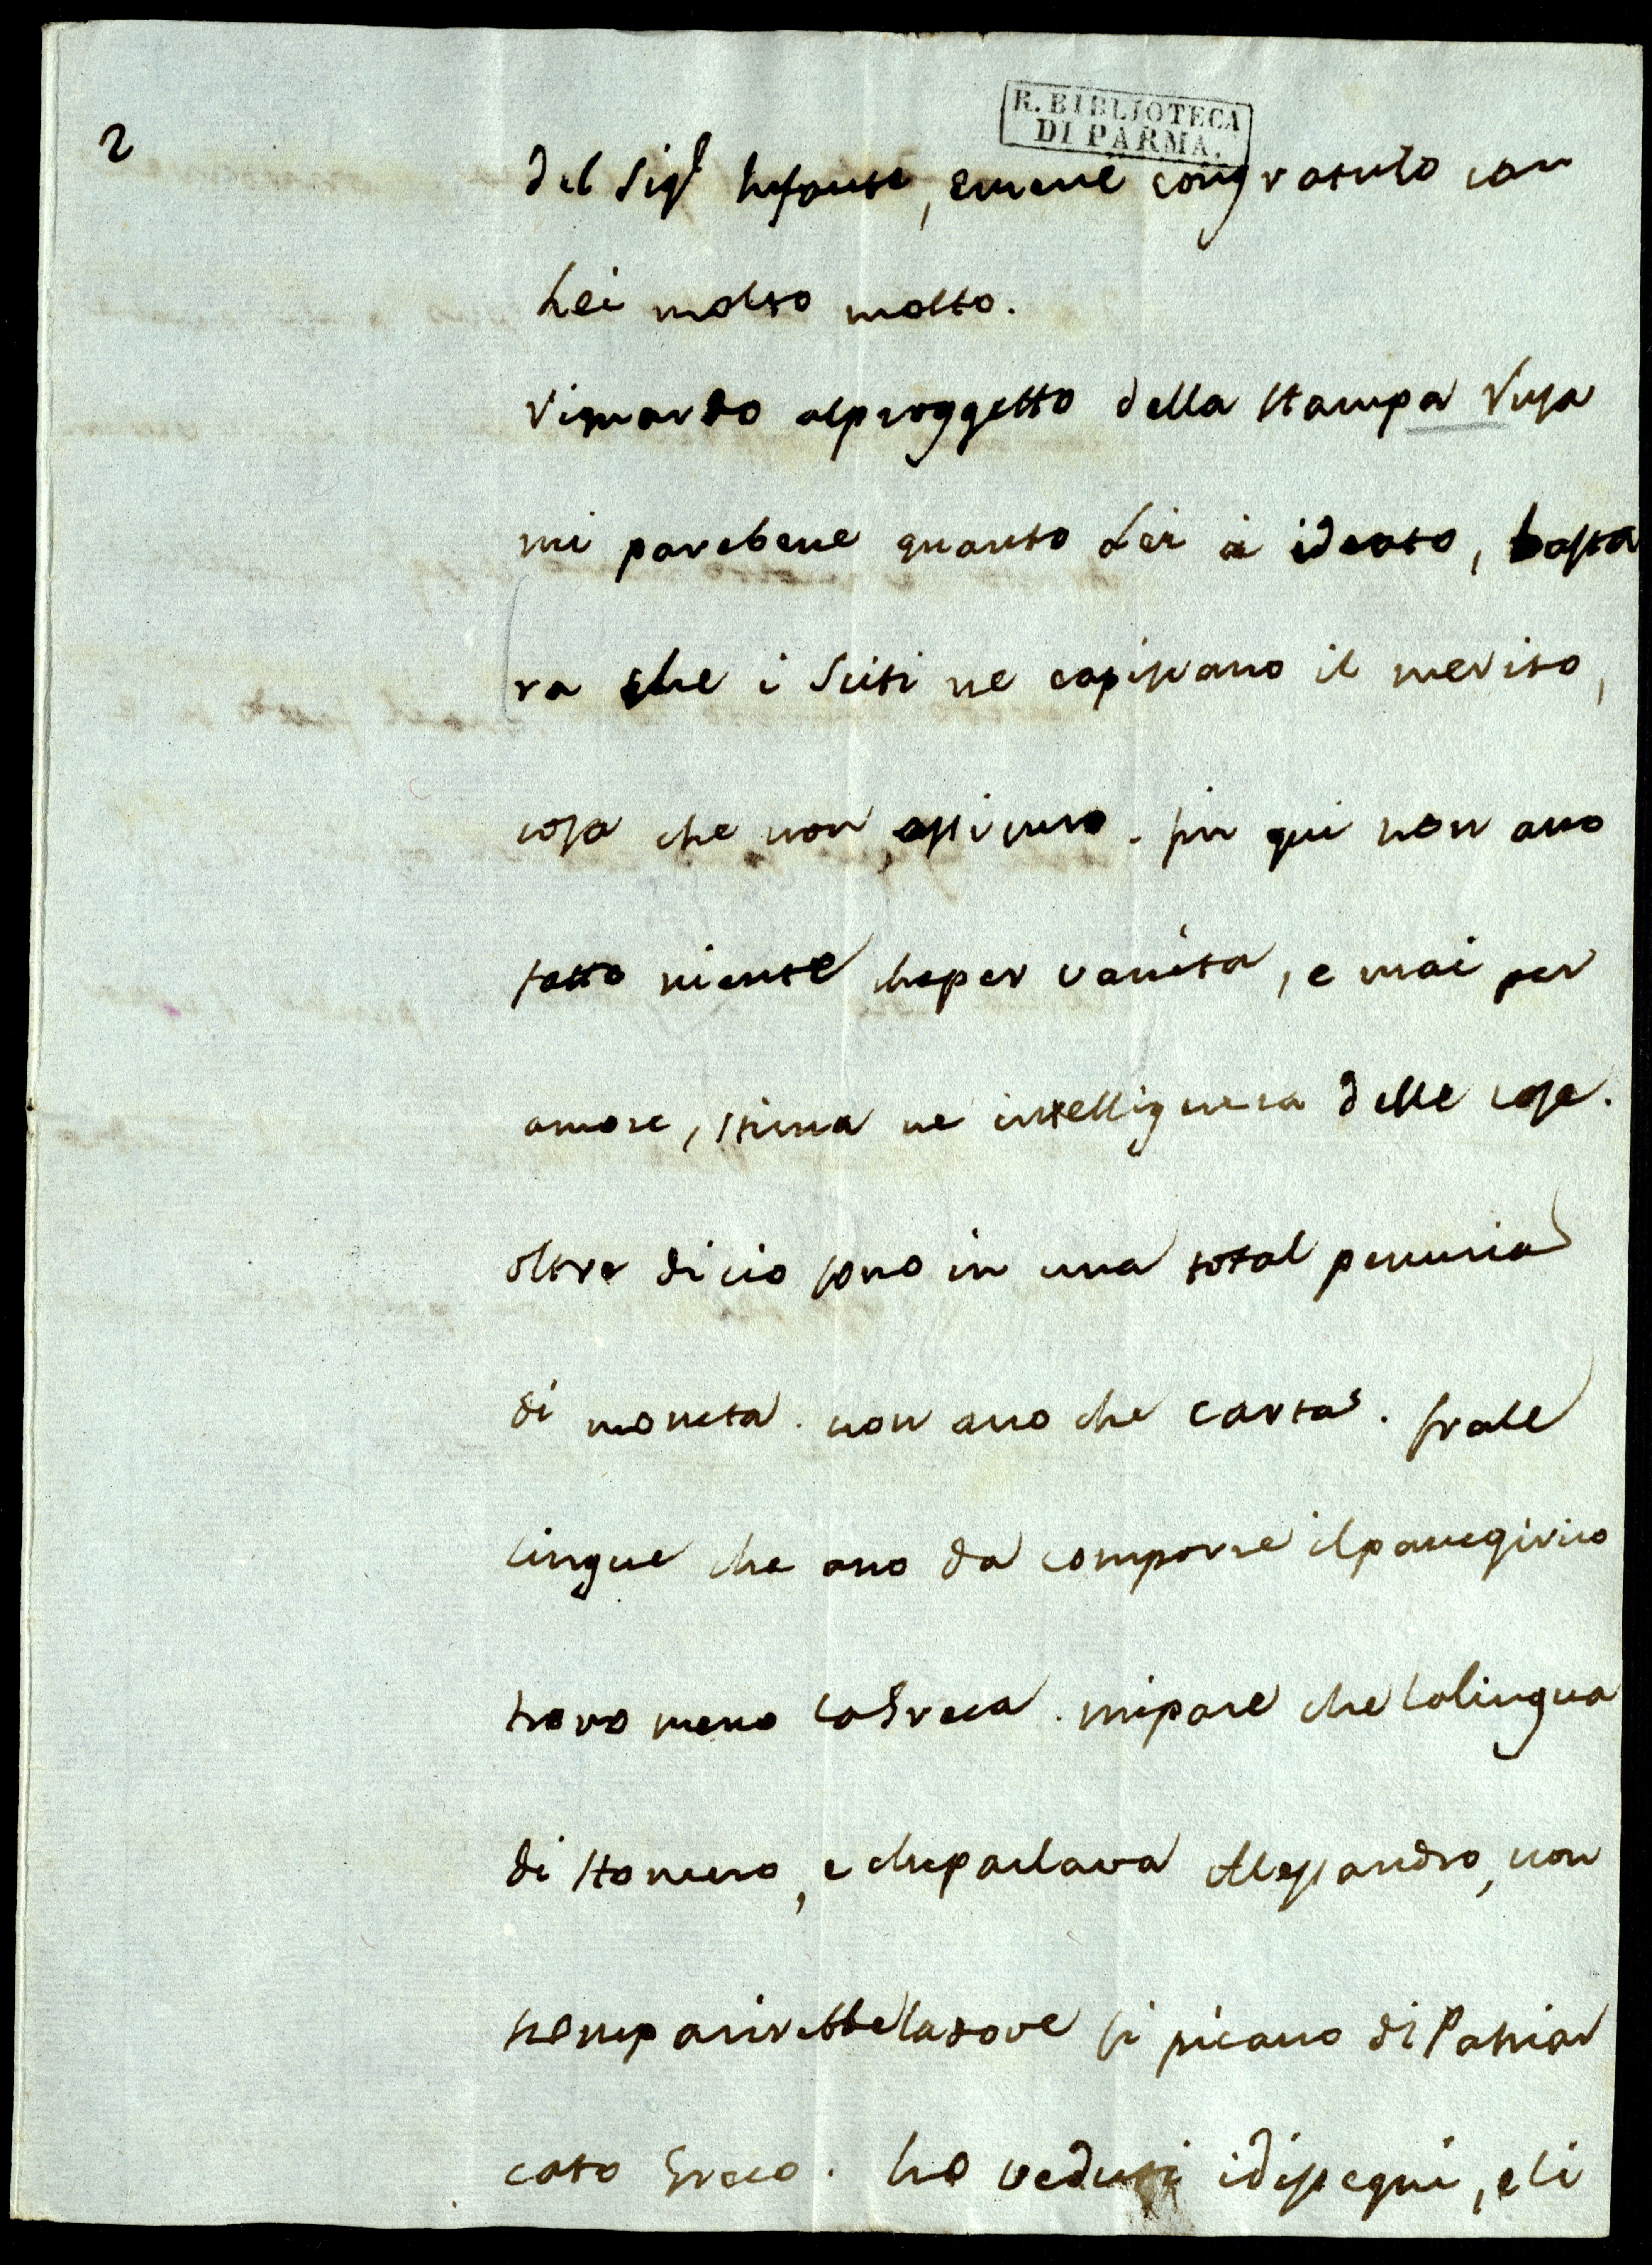 R. BIBLIOTECA
DI PARMA.
2
del Sigr Infante, e me ne congratulo con
Lei molto molto.
riguardo al proggetto della Stampa rusa
mi pare bene quanto Lei à ideato, basta
ra che i Sciti ne capiscano il merito,
cosa che non assicuro. fin qui non ano
fatto niente che per vanita, e mai per
amore, stima ne intelligenza delle cose.
oltre di cio sono in una total penuria
di moneta. non ano che carta. fra le
lingue che ano da comporre il panegirico
trovo meno la Greca. mi pare che la lingua
di Homero, e che parlava Alessandro, non
scomparirebbe la dove si picano di Patriar
cato Greco. ho veduti i disegni, e li